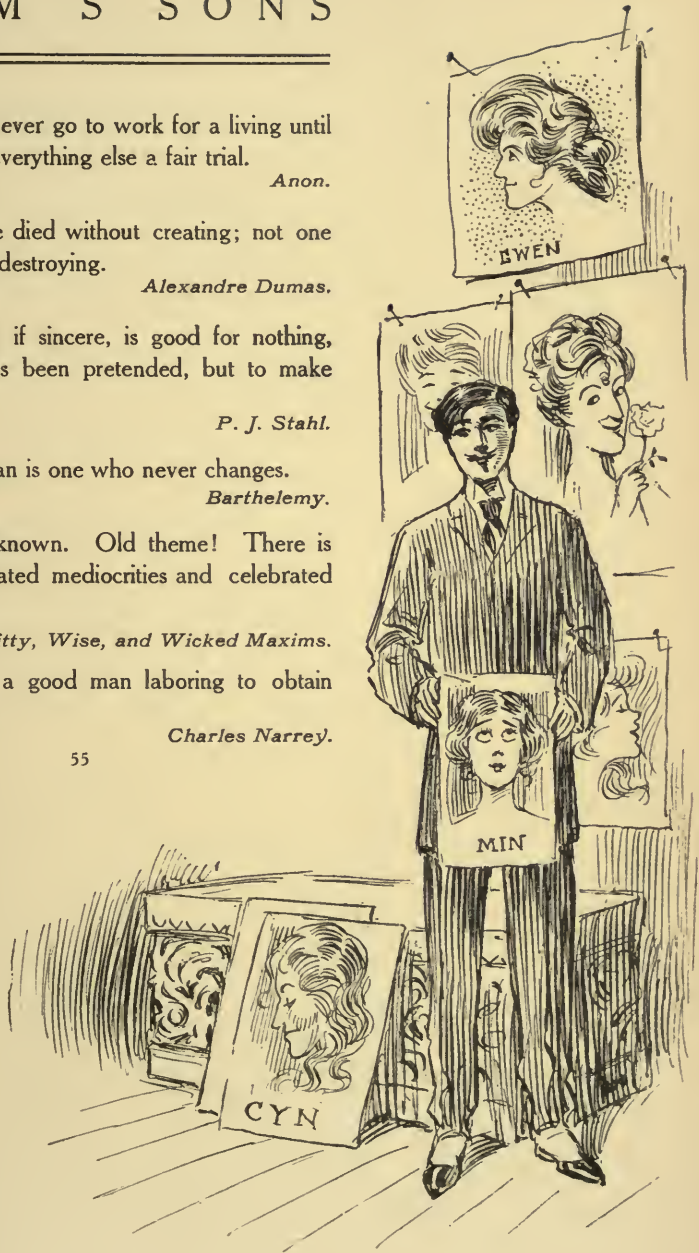 M S SONS
ever go to work for a living until
verything else a fair trial.
Anon.
e died without creating; not one
destroying.
Alexandre Dumas.
if sincere, is good for nothing,
s been pretended, but to make
P. J. Stahl.
an is one who never changes.
Barthelemy.
known. Old theme! There is
ated mediocrities and celebrated
itty, Wise, and Wicked Maxims.
a good man laboring to obtain
Charles Narrey.
55
GWEN
MIN
CYN